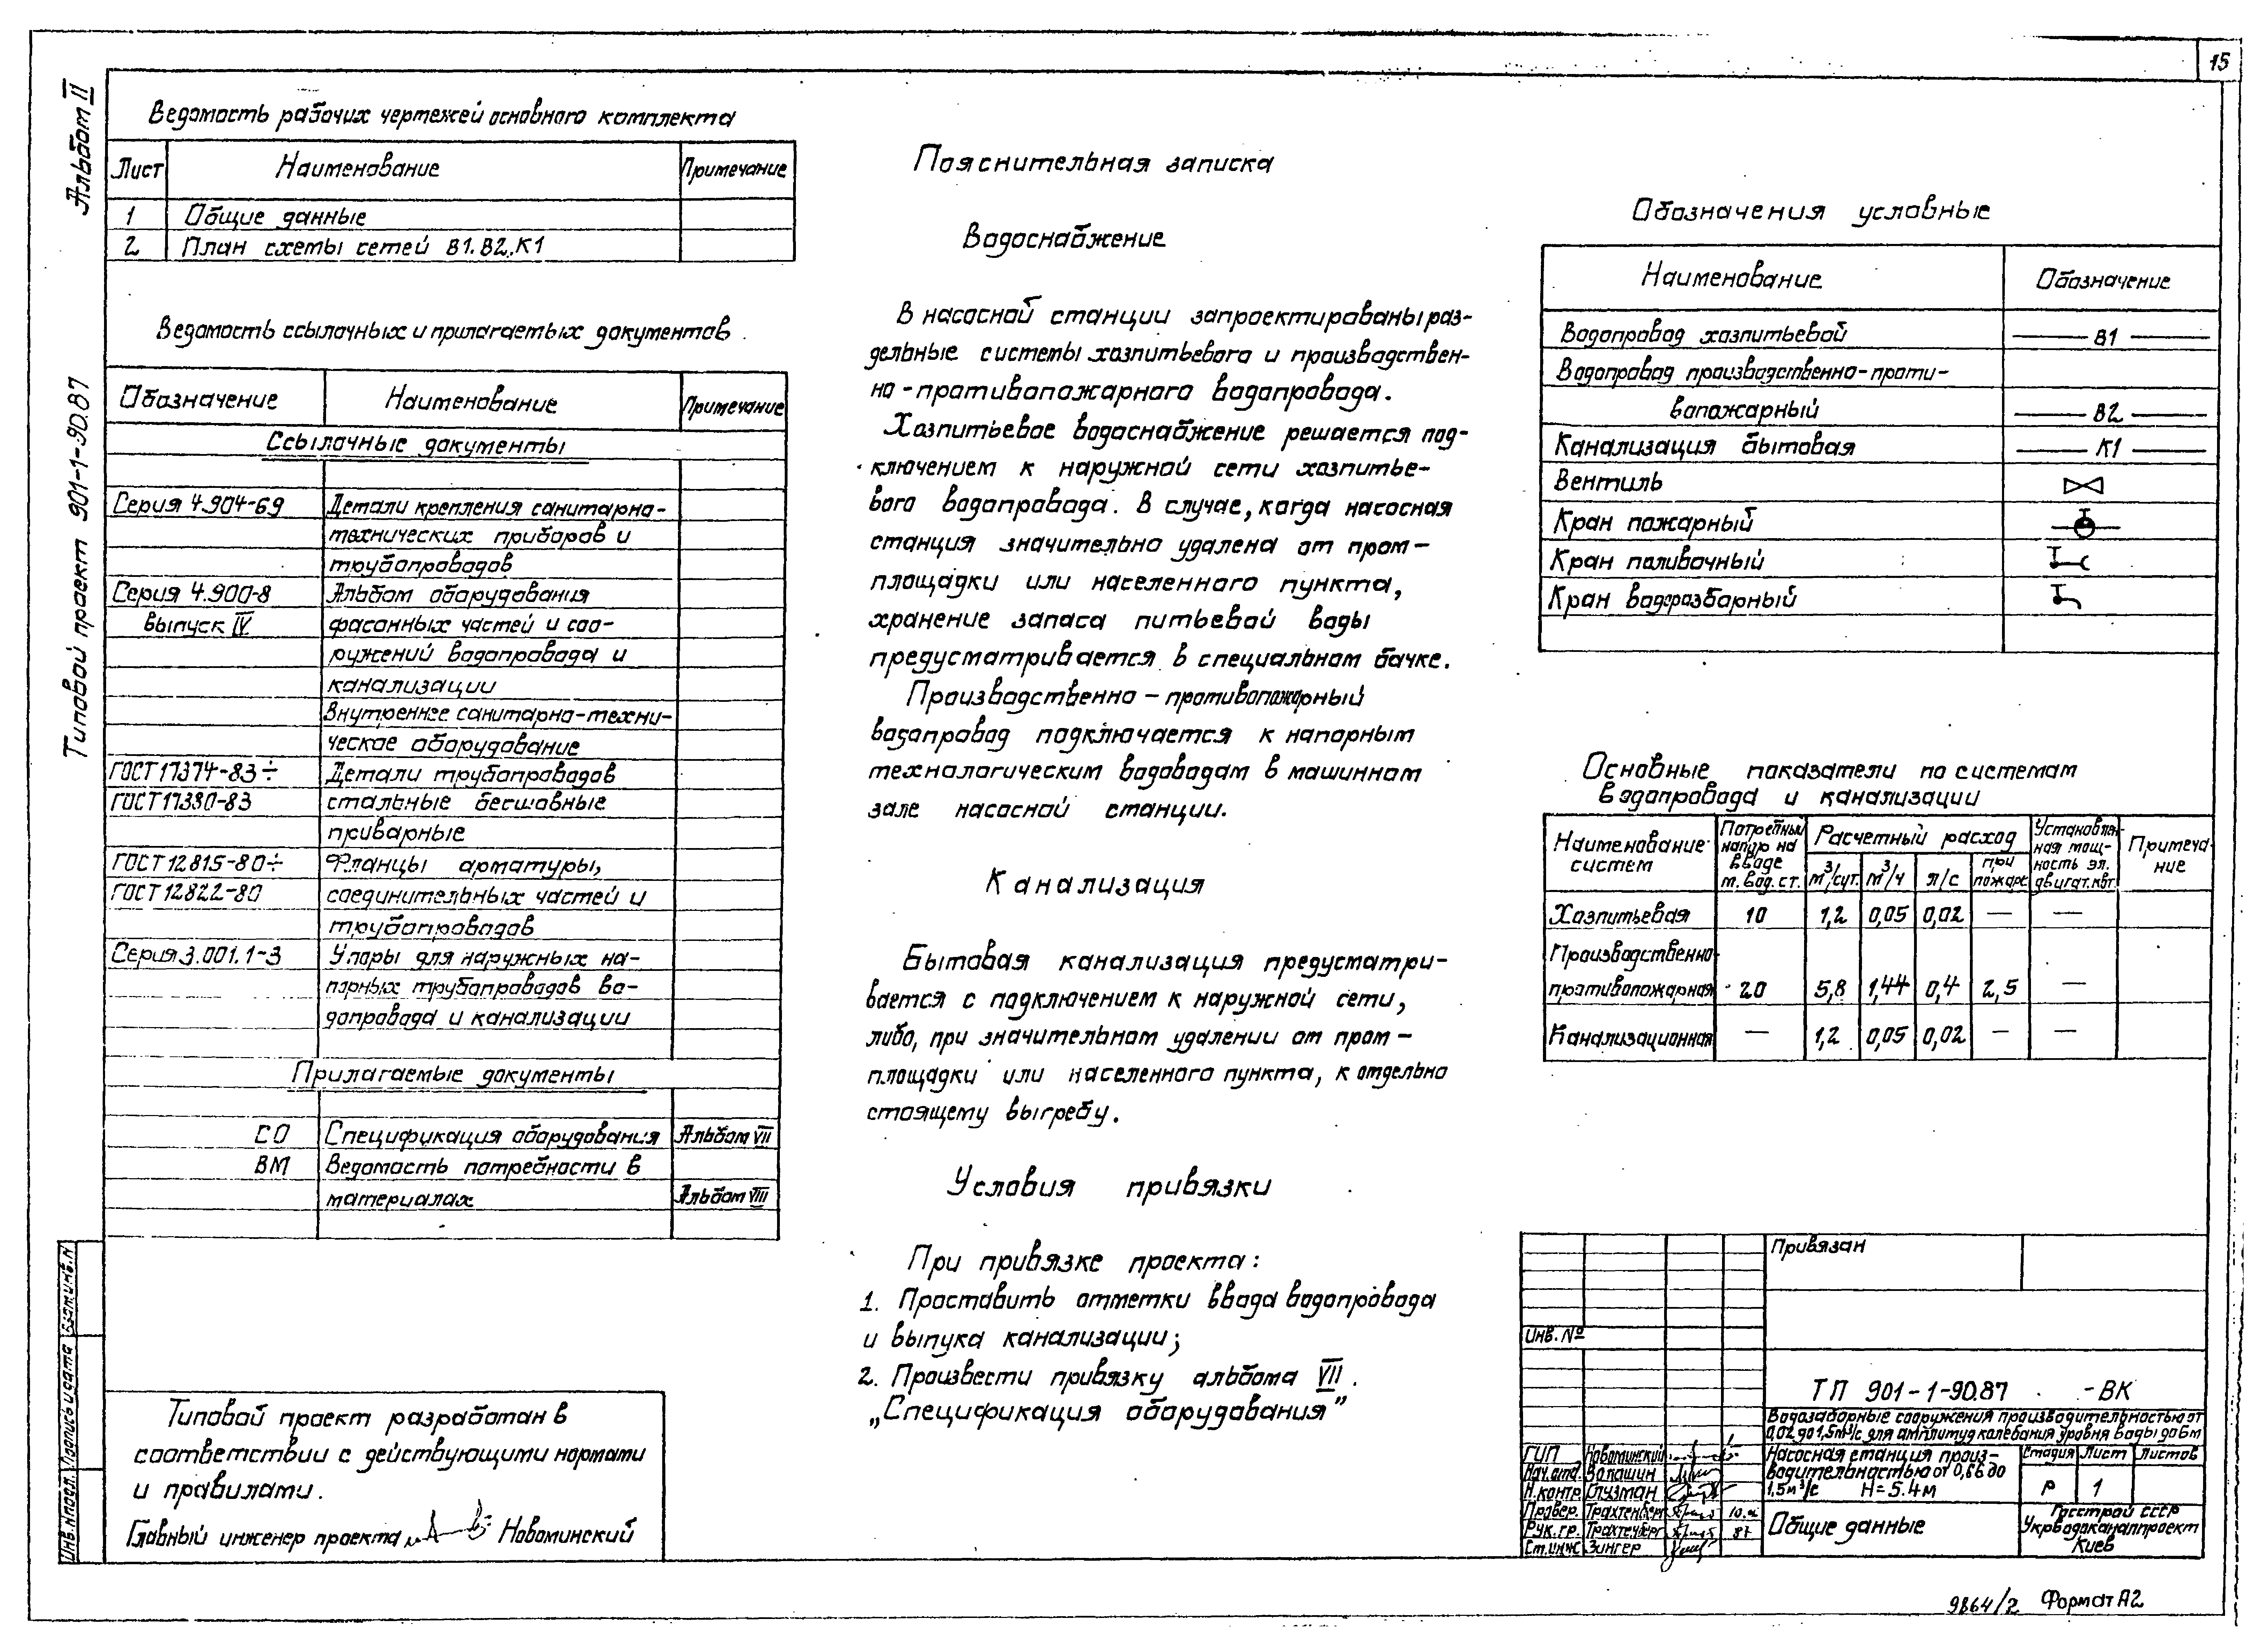 15
Альбом II
Типовой проект 901-1-90.87
Ведомость рабочих чертежей основного комплекта
Лист Наименование Примечание
1 Общие данные
2 План схемы сетей В1.В2.К1
Ведомость ссылочных и прилагаемых документов
Обозначение Наименование Примечание
Ссылочные документы
Серия 4.904-69 Детали крепления санитарно-
технических приборов и
трубопроводов
Серия 4.900-8 Альбом оборудования
выпуск IV фасонных частей и соо-
ружений водопровода и
канализации
Внутреннее санитарно-техни-
ческое оборудование
ГОСТ 17374-83÷ Детали трубопроводов
ГОСТ 17380-83 стальные бесшовные
приварные
ГОСТ 12815-80÷ Фланцы арматуры,
ГОСТ 12822-80 соединительных частей и
трубопроводов
Серия 3.001.1-3 Упоры для наружных на-
порных трубопроводов во-
допровода и канализации
Прилагаемые документы
СО Спецификация оборудования Альбом VII
ВМ Ведомость потребности в
материалах Альбом VIII
Типовой проект разработан в
соответствии с действующими нормами
и правилами.
Главный инженер проекта Новоминский
Инв.№подл. Подпись и дата Взам.инв.№
Пояснительная записка
Водоснабжение
В насосной станции запроектированы раз-
дельные системы хозпитьевого и производствен-
но-противопожарного водопровода.
Хозпитьевое водоснабжение решается под-
ключением к наружной сети хозпитье-
вого водопровода. В случае, когда насосная
станция значительно удалена от пром-
площадки или населенного пункта,
хранение запаса питьевой воды
предусматривается в специальном бачке.
Производственно-противопожарный
водопровод подключается к напорным
технологическим водоводам в машинном
зале насосной станции.
Канализация
Бытовая канализация предусматри-
вается с подключением к наружной сети,
либо, при значительном удалении от пром-
площадки или населенного пункта, к отдельно
стоящему выгребу.
Условия привязки
При привязке проекта:
1. Проставить отметки ввода водопровода
и выпука канализации;
2. Произвести привязку альбома VII.
„Спецификация оборудования"
Обозначения условные
Наименование Обозначение
Водопровод хозпитьевой В1
Водопровод производственно-проти-
вопожарный В2
Канализация бытовая К1
Вентиль
Кран пожарный
Кран поливочный
Кран водоразборный
Основные показатели по системам
водопровода и канализации
Наименование систем Потребный напор на вводе м.вод.ст. Расчетный расход м³/сут. м³/ч л/с при пожаре Установлен-ная мощ-ность эл. двигат. квт Примеча-ние
Хозпитьевая 10 1,2 0,05 0,02 — —
Производственно-
противопожарная 20 5,8 1,44 0,4 2,5 —
Канализационная — 1,2 0,05 0,02 — —
Привязан
Инв. №
ТП 901-1-90.87 -ВК
Водозаборные сооружения производительностью от
0,02 до 1,5м³/с для амплитуд колебания уровня воды до 6м
ГИП Новоминский
Нач.отд. Волошин
Н.контр. Глузман
Провер. Трахтенберг 10.
Рук.гр. Трахтенберг 87
Ст.инж Зингер
Насосная станция произ-
водительностью от 0,66 до
1,5м³/с H=5.4м
Стадия Лист Листов
Р 1
Общие данные
Госстрой СССР
Укрводоканалпроект
Киев
9864/2 Формат А2